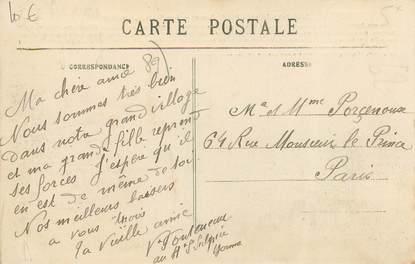 10 €
5x
CARTE POSTALE
CORRESPONDANCE
ADRESSE
89
Ma chère amie
Nous sommes très bien
dans notre grand village
et ma grande fille reprend
ses forces J'espère qu'il
en est de même de toi
Nos meilleurs baisers
a vous trois
Ta vieille amie
au
Yonne
Mr et Mme Porçenoux
64 Rue Monsieur le Prince
Paris